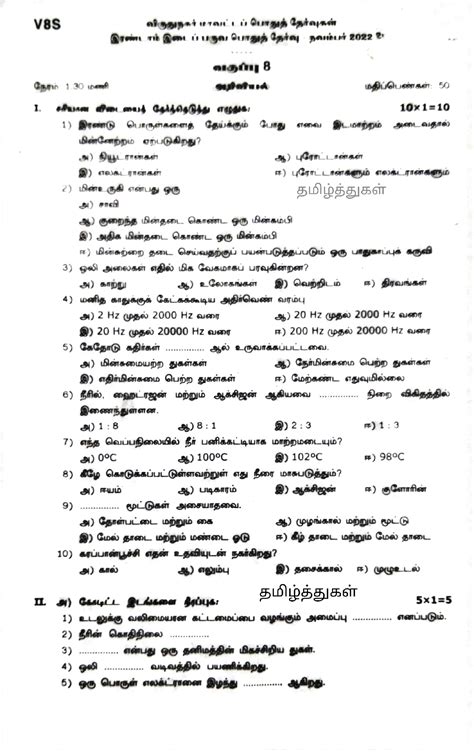 V8S
விருதுநகர் மாவட்டப் பொதுத் தேர்வுகள்
இரண்டாம் இடைப் பருவ பொதுத் தேர்வு நவம்பர் 2022
வகுப்பு 8
நேரம்: 1.30 மணி அறிவியல் மதிப்பெண்கள்: 50
I. சரியான விடையைத் தேர்ந்தெடுத்து எழுதுக: 10×1=10
1) இரண்டு பொருள்களைத் தேய்க்கும் போது எவை இடமாற்றம் அடைவதால்
மின்னேற்றம் ஏற்படுகிறது?
அ) நியூட்ரான்கள் ஆ) புரோட்டான்கள்
இ) எலக்ட்ரான்கள் ஈ) புரோட்டான்களும் எலக்ட்ரான்களும்
2) மின்உருகி என்பது ஒரு தமிழ்த்துகள்
அ) சாவி
ஆ) குறைந்த மின்தடை கொண்ட ஒரு மின்கம்பி
இ) அதிக மின்தடை கொண்ட ஒரு மின்கம்பி
ஈ) மின்சுற்றை தடை செய்வதற்குப் பயன்படுத்தப்படும் ஒரு பாதுகாப்புக் கருவி
3) ஒலி அலைகள் எதில் மிக வேகமாகப் பரவுகின்றன?
அ) காற்று ஆ) உலோகங்கள் இ) வெற்றிடம் ஈ) திரவங்கள்
4) மனித காதுக்குக் கேட்கக்கூடிய அதிர்வெண் வரம்பு
அ) 2 Hz முதல் 2000 Hz வரை ஆ) 20 Hz முதல் 2000 Hz வரை
இ) 20 Hz முதல் 20000 Hz வரை ஈ) 200 Hz முதல் 20000 Hz வரை
5) கேதோடு கதிர்கள் ............... ஆல் உருவாக்கப்பட்டவை.
அ) மின்சுமையற்ற துகள்கள் ஆ) நேர்மின்சுமை பெற்ற துகள்கள்
இ) எதிர்மின்சுமை பெற்ற துகள்கள் ஈ) மேற்கண்ட எதுவுமில்லை
6) நீரில், ஹைட்ரஜன் மற்றும் ஆக்சிஜன் ஆகியவை ............... நிறை விகிதத்தில்
இணைந்துள்ளன.
அ) 1 : 8 ஆ) 8 : 1 இ) 2 : 3 ஈ) 1 : 3
7) எந்த வெப்பநிலையில் நீர் பனிக்கட்டியாக மாற்றமடையும்?
அ) 0°C ஆ) 100°C இ) 102°C ஈ) 98°C
8) கீழே கொடுக்கப்பட்டுள்ளவற்றுள் எது நீரை மாசுபடுத்தும்?
அ) ஈயம் ஆ) படிகாரம் இ) ஆக்சிஜன் ஈ) குளோரின்
9) ............... மூட்டுகள் அசையாதவை.
அ) தோள்பட்டை மற்றும் கை ஆ) முழங்கால் மற்றும் மூட்டு
இ) மேல் தாடை மற்றும் மண்டை ஓடு ஈ) கீழ் தாடை மற்றும் மேல் தாடை
10) கரப்பான்பூச்சி எதன் உதவியுடன் நகர்கிறது?
அ) கால் ஆ) எலும்பு இ) தசைக்கால் ஈ) முழுஉடல்
தமிழ்த்துகள்
II. அ) கோடிட்ட இடங்களை நிரப்புக: 5×1=5
1) உடலுக்கு வலிமையான கட்டமைப்பை வழங்கும் அமைப்பு ............... எனப்படும்.
2) நீரின் கொதிநிலை ...............
3) ............... என்பது ஒரு தனிமத்தின் மிகச்சிறிய துகள்.
4) ஒலி ............... வடிவத்தில் பயணிக்கிறது.
5) ஒரு பொருள் எலக்ட்ரானை இழந்து ............... ஆகிறது.